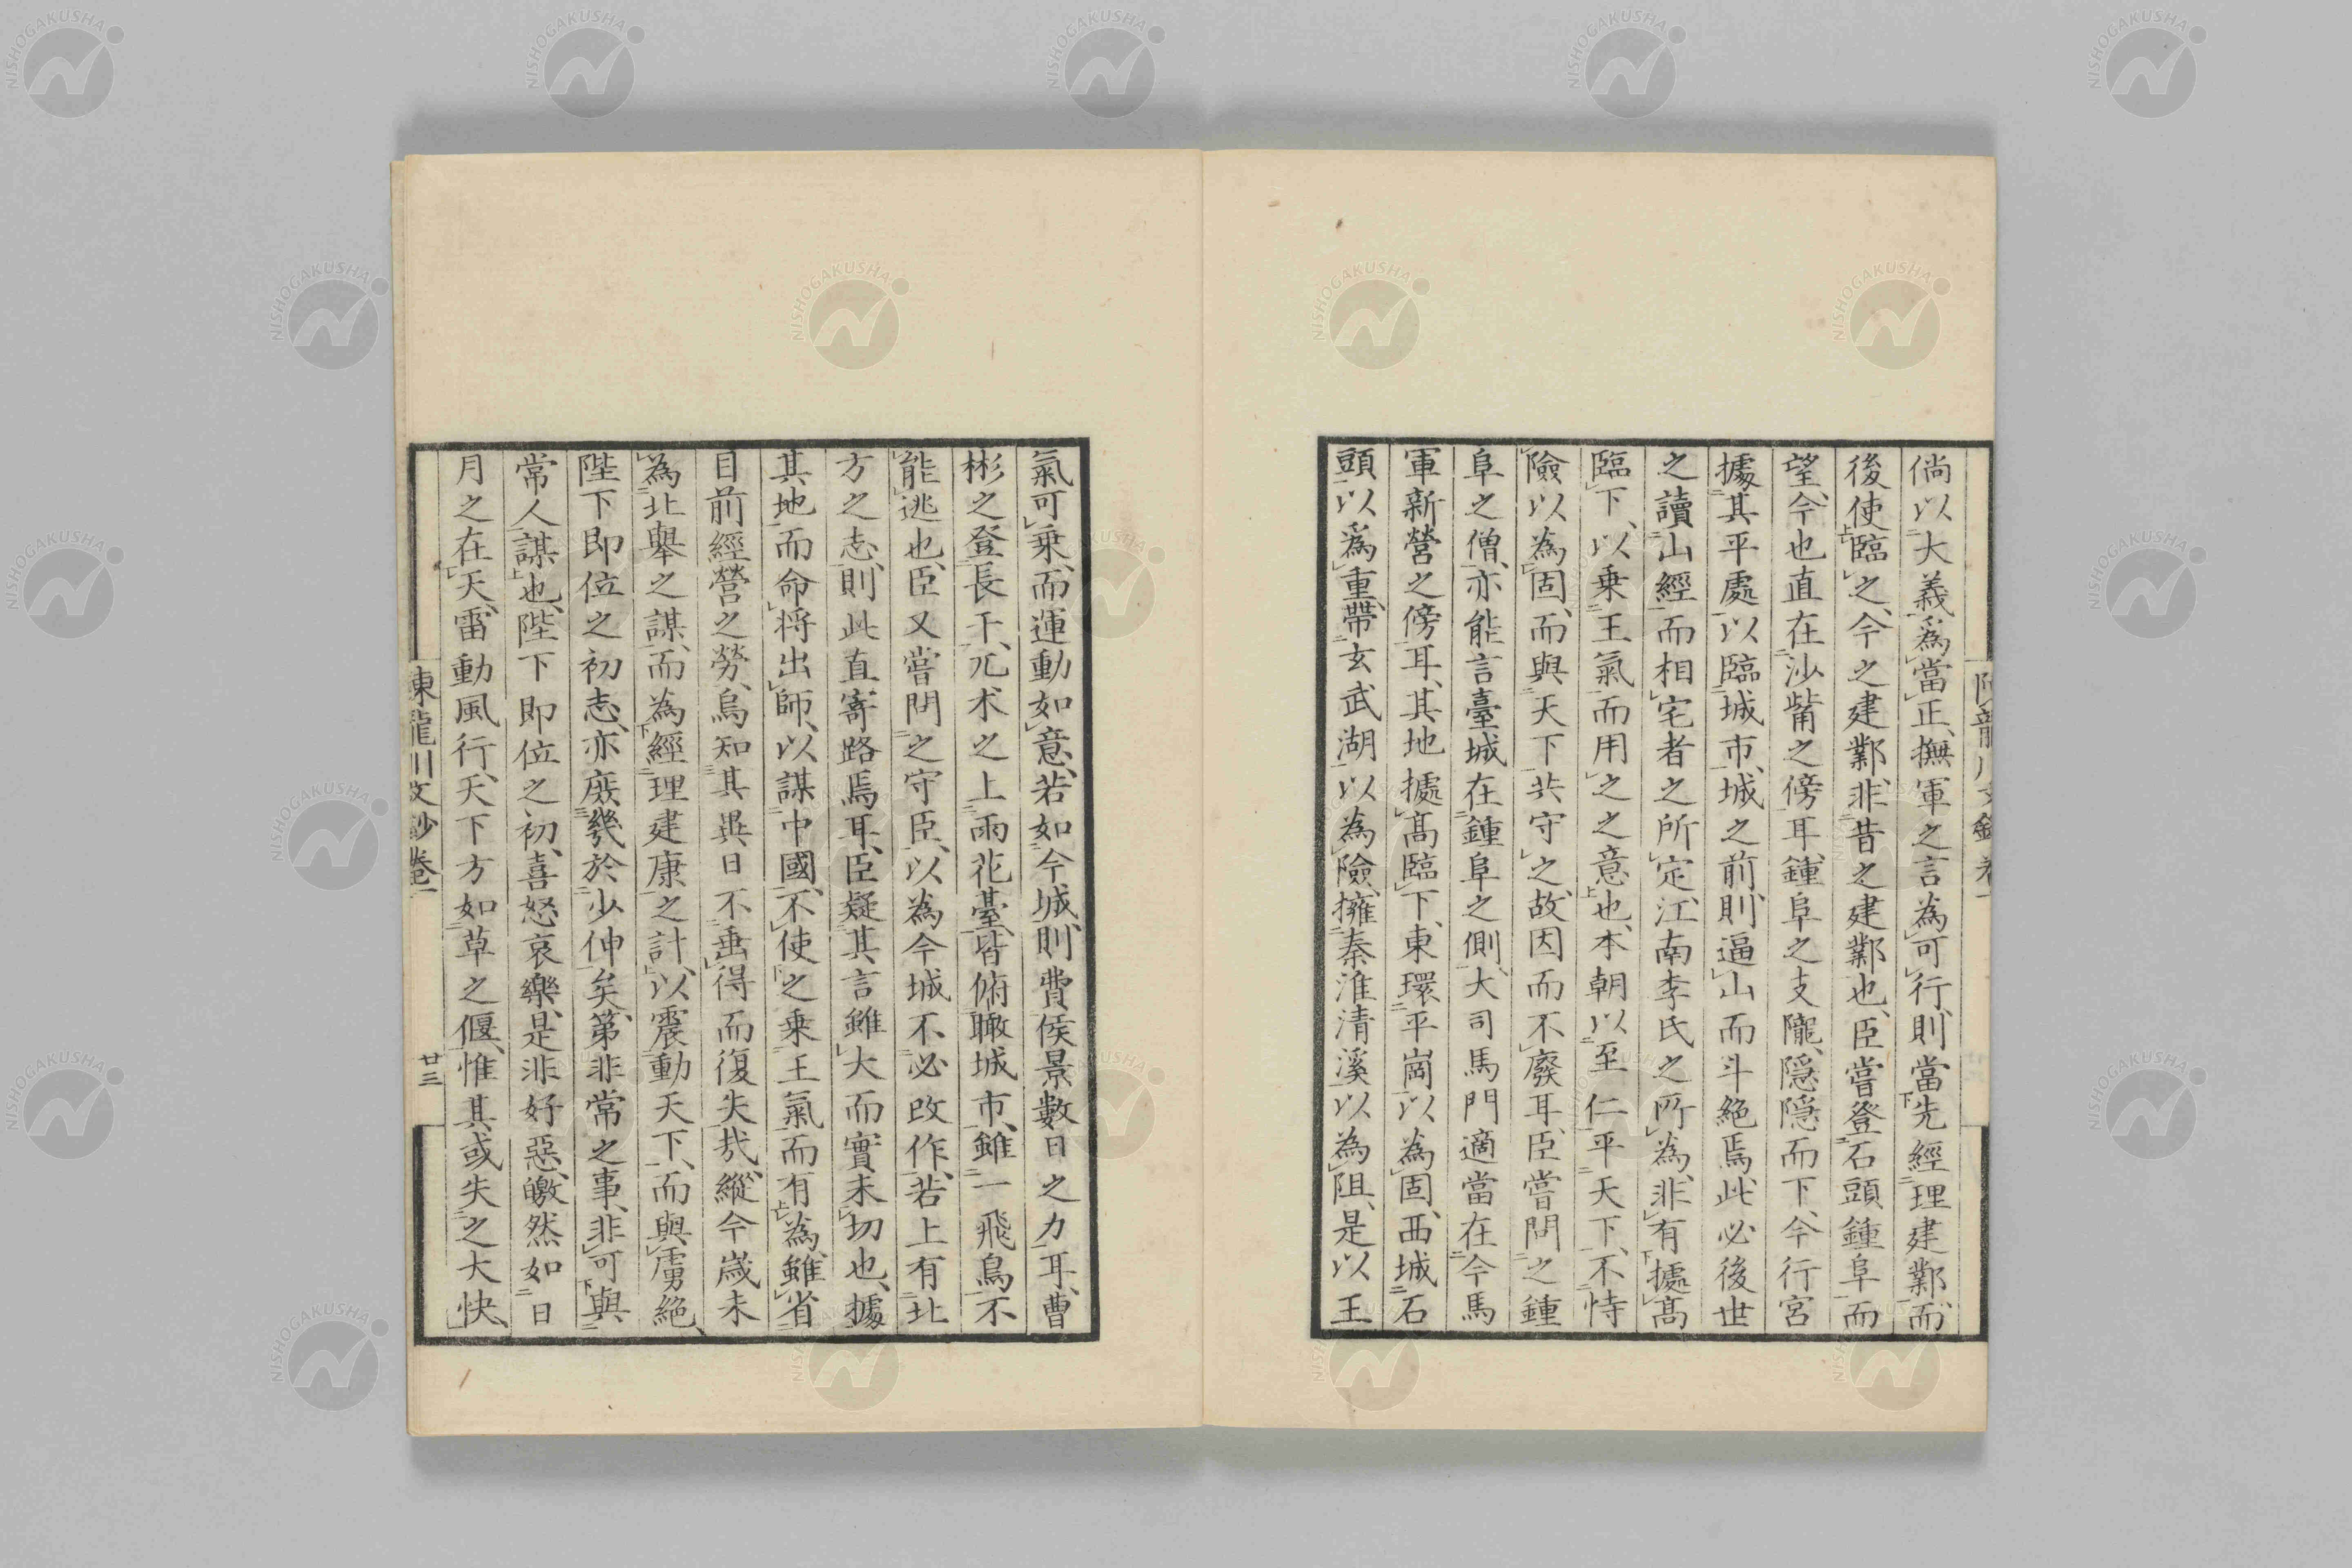 倘以大義爲當正撫軍之言為可行則當先經理建鄴而
後使臨之今之建鄴非昔之建鄴也臣嘗登石頭鍾阜而
望今也直在沙觜之傍耳鍾阜之支隴隱隱而下今行宮
據其平處以臨城市城之前則逼山而斗絕焉此必後世
之讀山經而相宅者之所定江南李氏之所為非有據高
臨下以乘王氣而用之之意也本朝以至仁平天下不恃
險以為固而與天下共守之故因而不廢耳臣嘗問之鍾
阜之僧亦能言臺城在鍾阜之側大司馬門適當在今馬
軍新營之傍耳其地據高臨下東環平崗以為固西城石
頭以爲重帶玄武湖以為險擁秦淮清溪以為阻是以王
氣可乘而運動如意若如今城則費侯景數日之力耳曹
彬之登長干兀朮之上雨花臺皆俯瞰城市雖一飛鳥不
能逃也臣又嘗問之守臣以為今城不必改作若上有北
方之志則此直寄路焉耳臣疑其言雖大而實未切也據
其地而命將出師以謀中國不使之乘王氣而有為雖省
目前經營之勞烏知其異日不垂得而復失哉縱今歲未
為北舉之謀而為經理建康之計以震動天下而與虜絕
陛下即位之初志亦庶幾於少伸矣第非常之事非可與
常人謀也陛下即位之初喜怒哀樂是非好惡皦然如日
月之在天雷動風行天下方如草之偃惟其或失之大快
陳龍川文鈔卷一
廿三